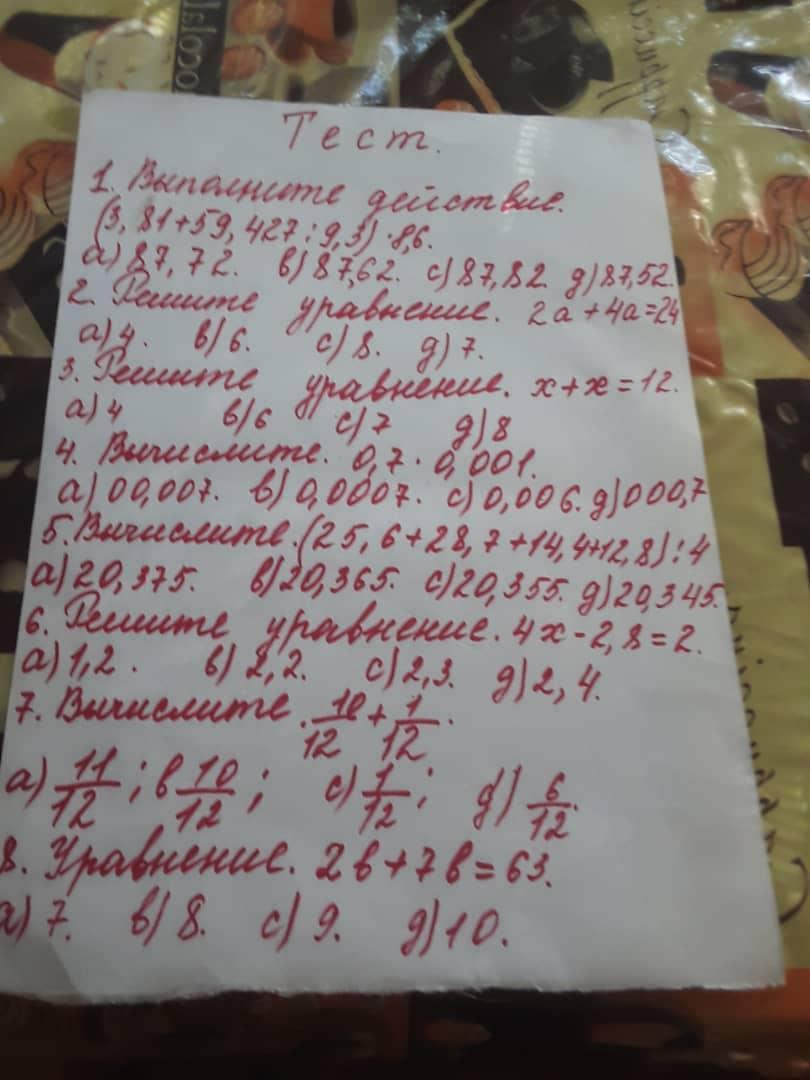 Тест.
1. Выполните действие.
(3,81+59,427:9,3)·8,6.
а) 87,72. в) 87,62. с) 87,82 д) 87,52.
2. Решите уравнение. 2а+4а=24
а) 4. в) 6. с) 8. д) 7.
3. Решите уравнение. х+х=12.
а) 4 в) 6 с) 7 д) 8
4. Вычислите. 0,7·0,001.
а) 00,007. в) 0,0007. с) 0,006. д) 000,7
5. Вычислите. (25,6+28,7+14,4+12,8):4
а) 20,375. в) 20,365. с) 20,355. д) 20,345.
6. Решите уравнение. 4х-2,8=2.
а) 1,2. в) 2,2. с) 2,3. д) 2,4.
7. Вычислите. 10/12+1/12.
а) 11/12; в 10/12; с) 1/12; д) 6/12.
8. Уравнение. 2в+7в=63.
а) 7. в) 8. с) 9. д) 10.